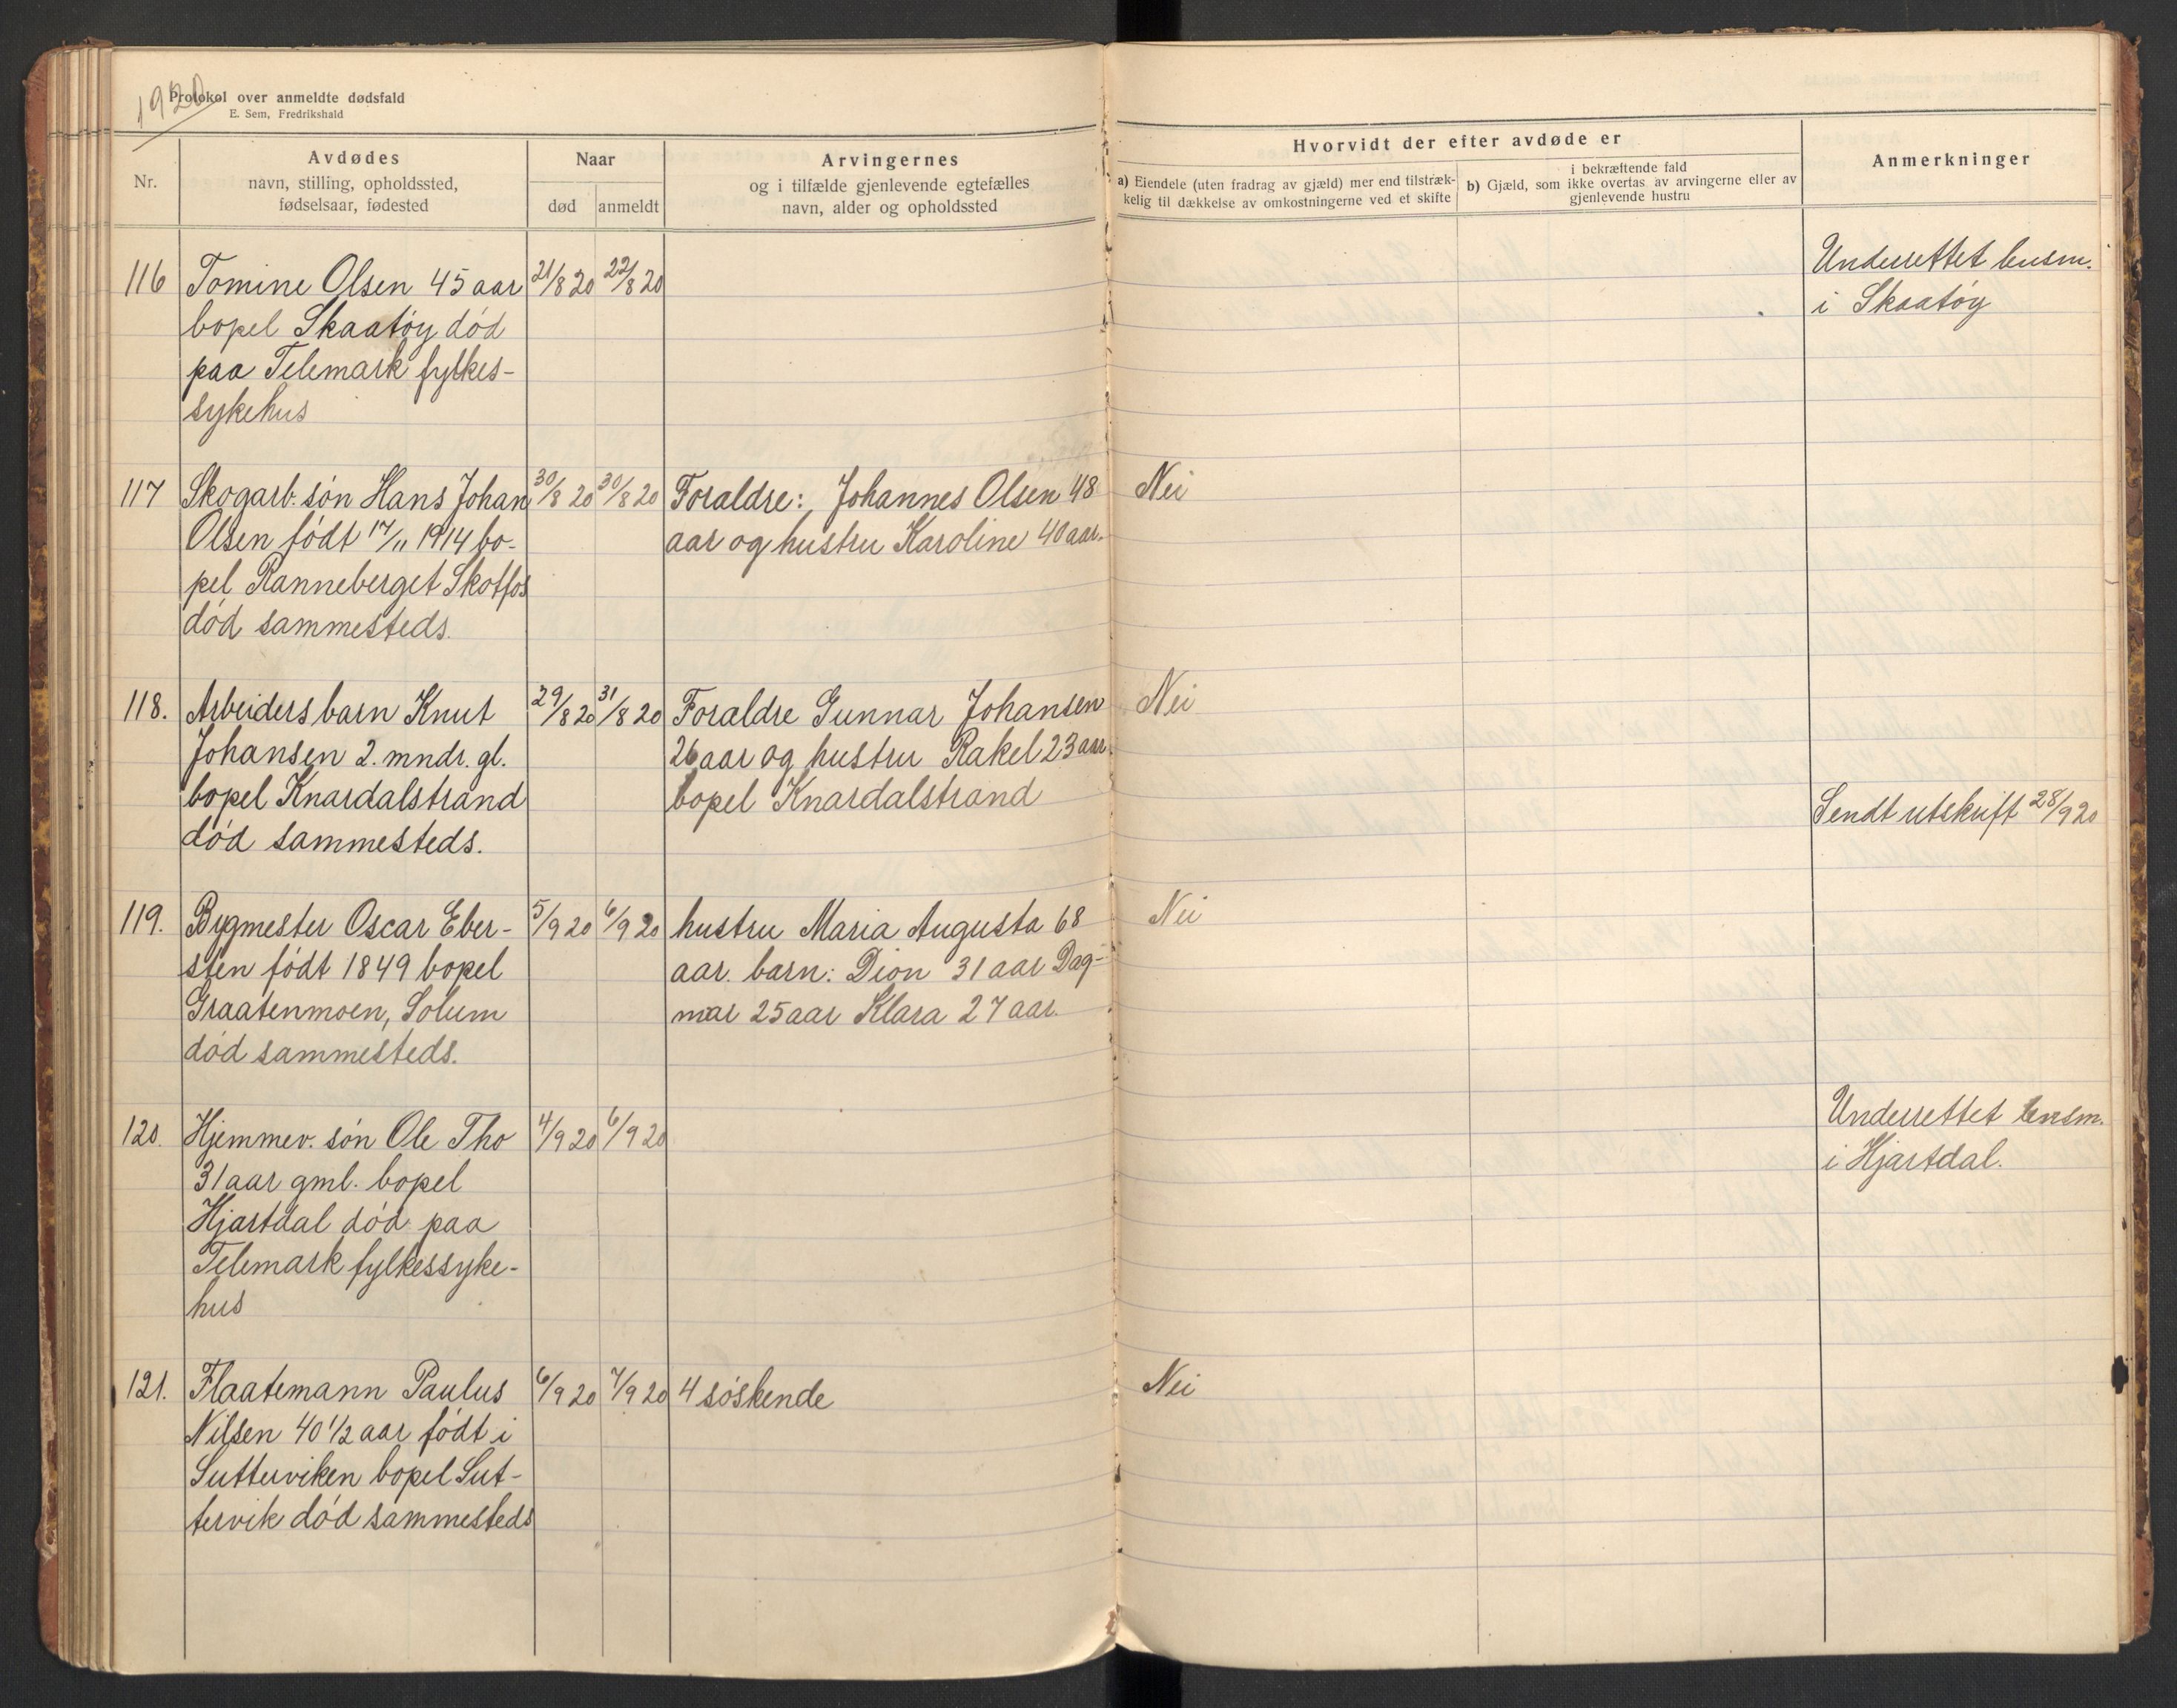 1920
Protokol over anmeldte dødsfald
E. Sem, Fredrikshald
Nr.
Avdødes
navn, stilling, opholdssted,
fødselsaar, fødested
Naar
død anmeldt
Arvingernes
og i tilfælde gjenlevende egtefælles
navn, alder og opholdssted
Hvorvidt der efter avdøde er
a) Eiendele (uten fradrag av gjæld) mer end tilstræk-
kelig til dækkelse av omkostningerne ved et skifte
i bekræftende fald
b) Gjæld, som ikke overtas av arvingerne eller av
gjenlevende hustru
Anmerkninger
116 Tomine Olsen 45 aar 21/8 20 22/8 20
bopel Skaatøy død
paa Telemark fylkes-
sykehus
Underrettet lensm.
i Skaatøy
117 Skogarb. søn Hans Johan 30/8 20 30/8 20 Foraldre: Johannes Olsen 48 Nei
Olsen født 17/11 1914 bo- aar og hustru Karoline 40 aar.
pel Ranneberget Skotfos
død sammesteds.
118. Arbeiders barn Knut 29/8 20 31/8 20 Foraldre Gunnar Johansen Nei
Johansen 2. mndr. gl. 26 aar og hustru Rakel 23 aar
bopel Knardalstrand bopel Knardalstrand Sendt utskrift 28/9 20
død sammesteds.
119. Bygmester Oscar Eber- 5/9 20 6/9 20 hustru Maria Augusta 68 Nei
sten født 1849 bopel aar. barn: Dion 31 aar Dag-
Graatenmoen, Solum mar 25 aar Klara 27 aar.
død sammesteds.
120. Hjemmev. søn Ole Tho 4/9 20 6/9 20 Underrettet lensm.
31 aar gml. bopel i Hjartdal.
Hjartdal død paa
Telemark fylkessyke-
hus
121. Flaatemann Paulus 6/9 20 7/9 20 4 søskende Nei
Nilsen 40 1/2 aar født i
Sutterviken bopel Sut-
tervik død sammesteds